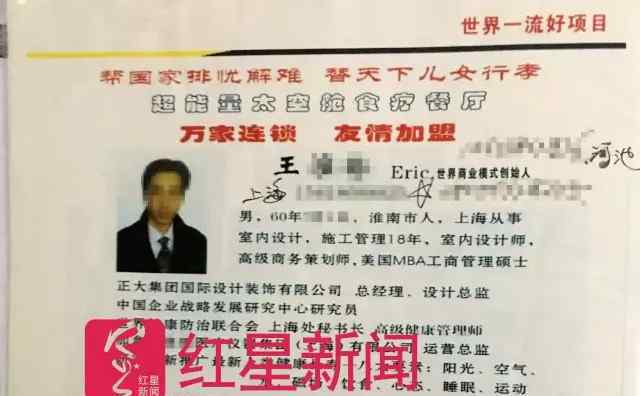 世界一流好项目
帮国家排忧解难 替天下儿女行孝
超能量太空舱食疗餐厅
万家连锁 友情加盟
河池
王 Eric,世界商业模式创始人
上海
男，60年 淮南市人，上海从事
室内设计，施工管理18年，室内设计师，
高级商务策划师，美国MBA工商管理硕士
正大集团国际设计装饰有限公司 总经理、设计总监
中国企业战略发展研究中心研究员
世界 康防治联合会 上海处秘书长 高级健康管理师
集团（ 有限公司 运营总监
新推广最新 健康 要素：阳光、空气、
饮食、心态、睡眠、运动
红星新闻
红星
新闻